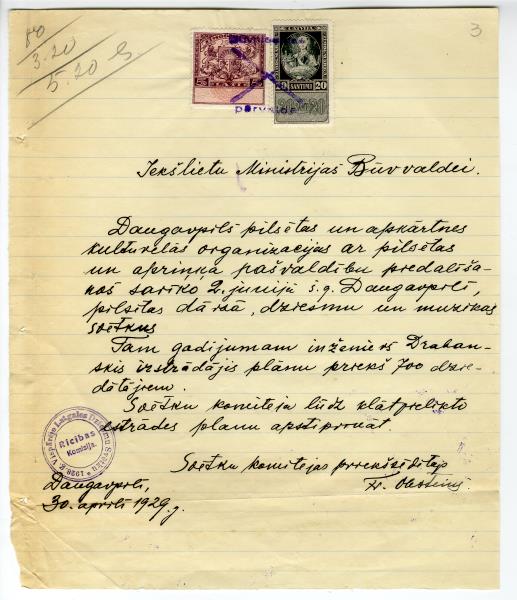 80
3.20
5.20
3
LATVIJA
5 LATI 5
20 SANTIMI 20
Būvnide
pārvalde
Iekšlietu Ministrijas Būvvaldei.
Daugavpils pilsētas un apkārtnes
kulturēlās organizacijas ar pilsētas
un apriņķa pašvaldību predalīša-
nos sarīko 2. junijā š.g. Daugavpilī,
pilsētas dārzā, dziesmu un muzikas
svētkus
Tam gadijumam inženiers Draban-
skis izstrādājis plānu priekš 700 dzie-
dātājiem.
Svētku komiteja lūdz klātpielikto
estrādes planu apstiprināt.
Svētku komitejas priekšsēdētājs
Daugavpilī,
30. aprilī 1929. g.
Rīcības
Komisija.
Vispārējo Latgales Dziesmu Svētku